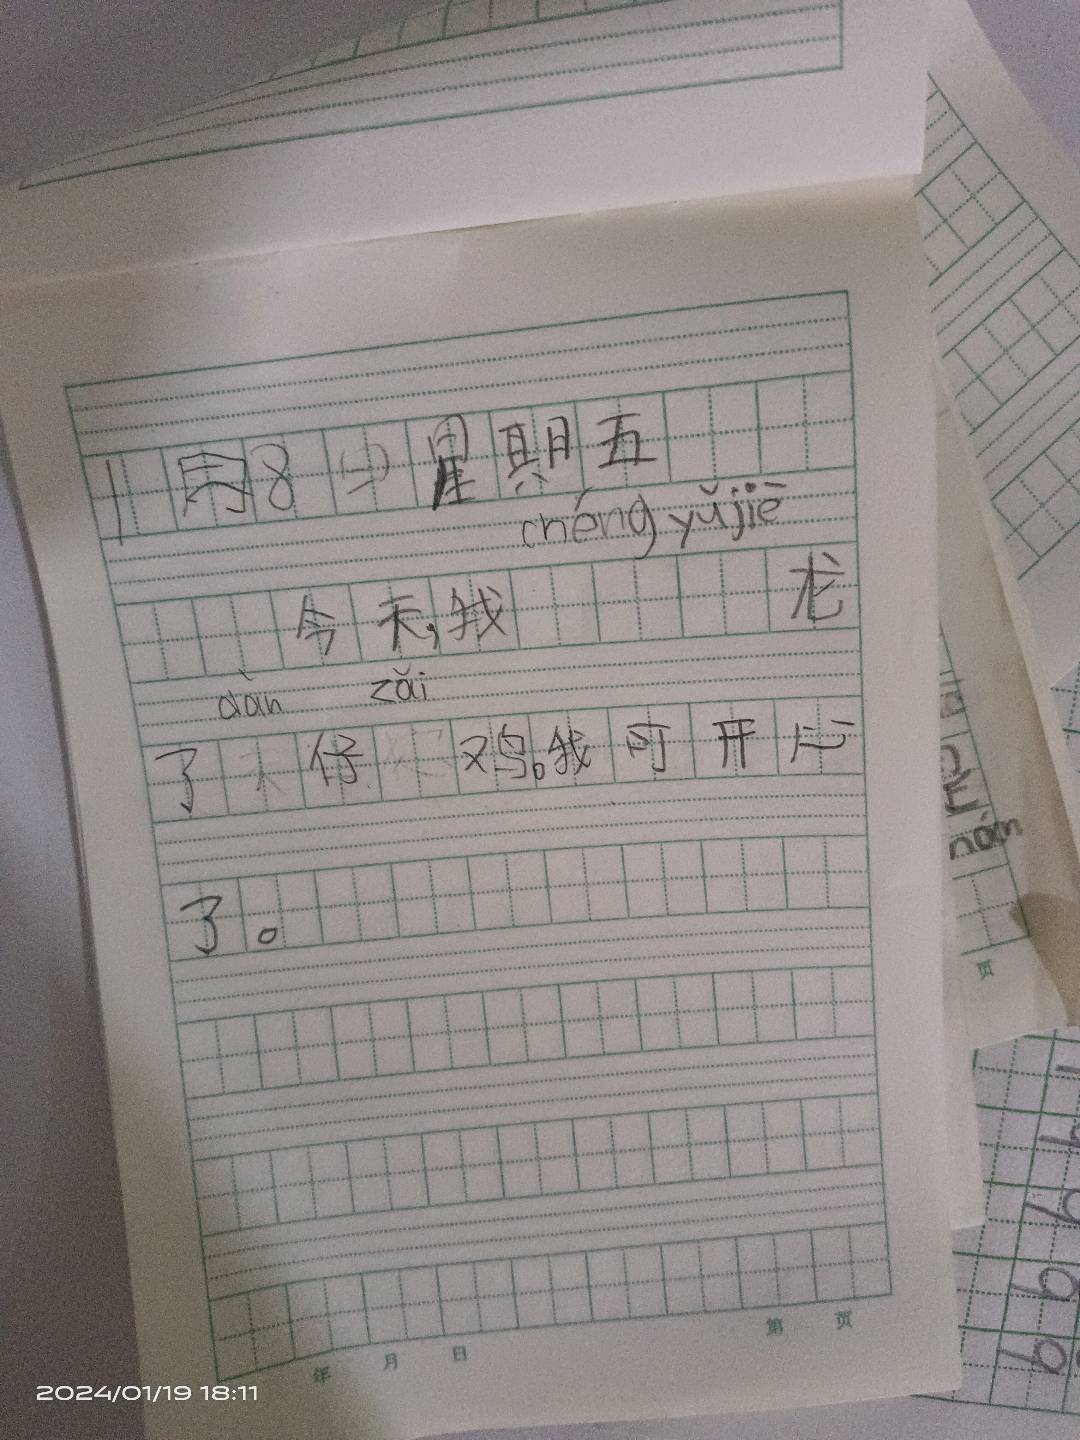 1周8 星期五
chéng yǔ jiē
今天,我 龙
dàn zǎi
了 仔 鸡。我可开心
了。
nán
页
年 月 日 第 页
2024/01/19 18:11